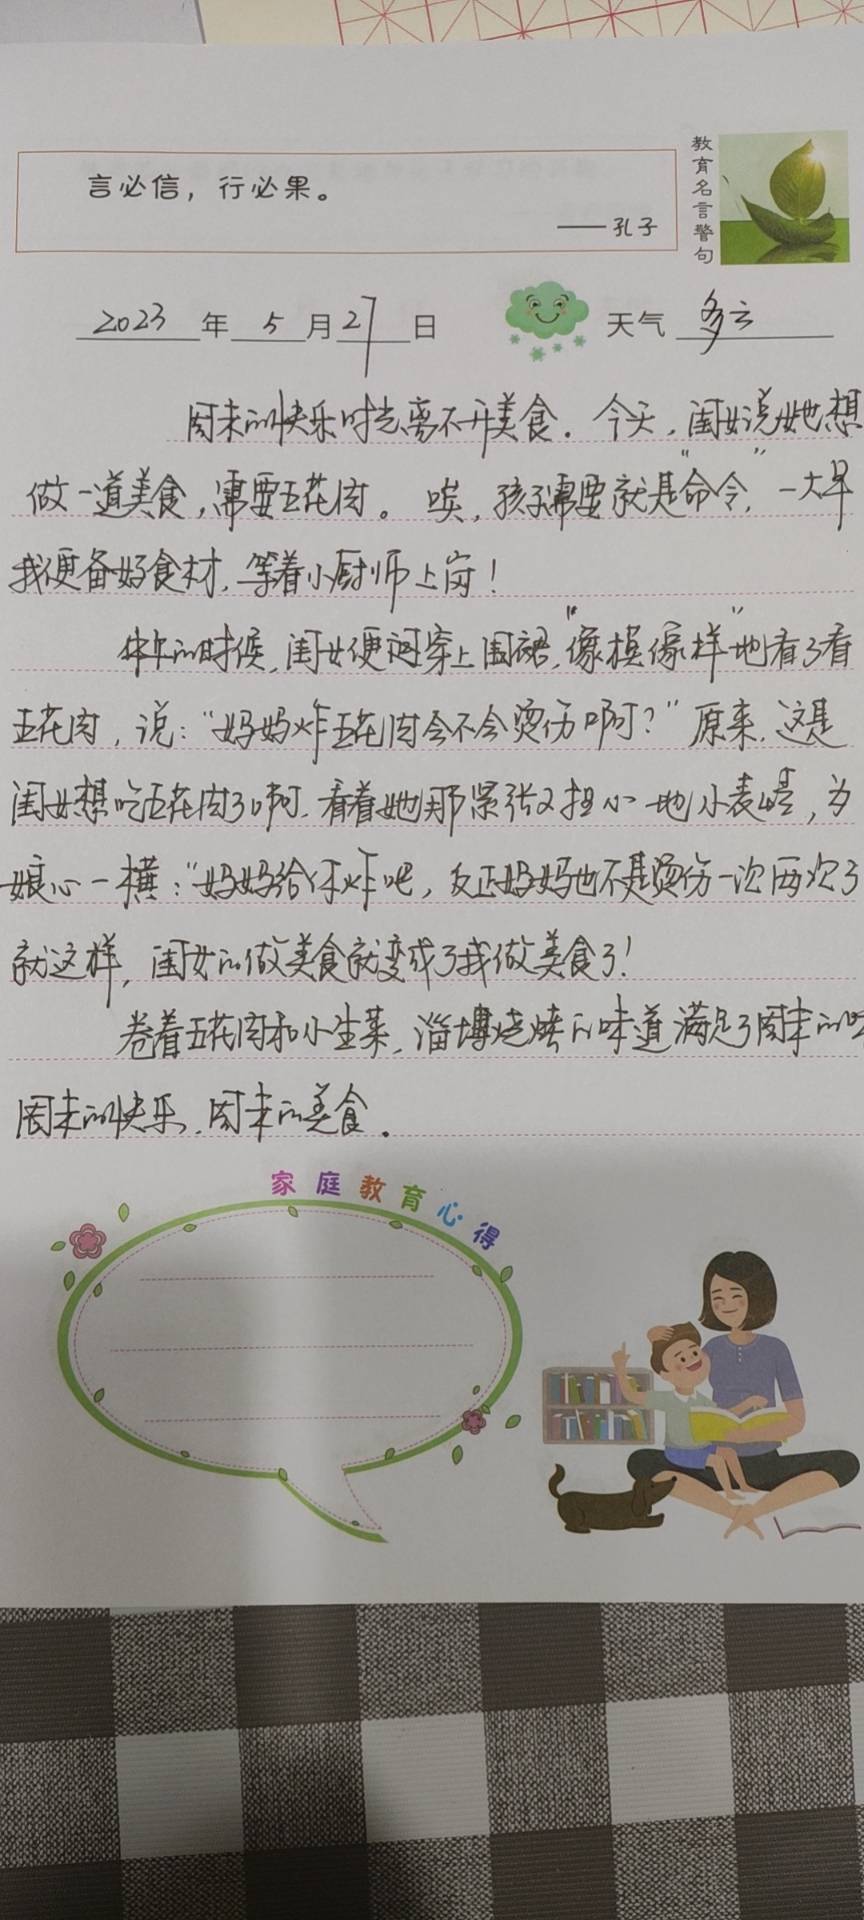 言必信，行必果。
——孔子
教育名言警句
2023年5月27日
天气 多云
周末的快乐时光离不开美食。今天，闺女说她想
做一道美食，需要五花肉。唉，孩子需要就是“命令”，一大早
我便备好食材，等着小厨师上岗！
中午的时候，闺女便穿上围裙，“像模像样”地看了看
五花肉，说：“妈妈炸五花肉会不会烫伤啊？”原来，这是
闺女想吃五花肉了啊。看着她那紧张又担心地小表情，为
娘心一横：“妈妈给你炸吧，反正妈妈也不是烫伤一次两次了
就这样，闺女的做美食就变成了我做美食了！
卷着五花肉和小生菜，淄博烧烤的味道满足了周末的
周末的快乐，周末的美食。
家庭教育心得